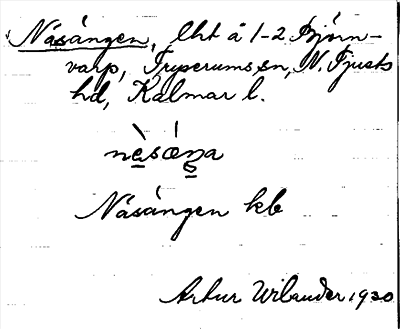 Näsängen, lht å 1-2 Björn-
varp, Tryserums sn, N. Tjusts
hd, Kalmar l.
nèsæŋa
Näsängen kb
Artur Wilander 1920